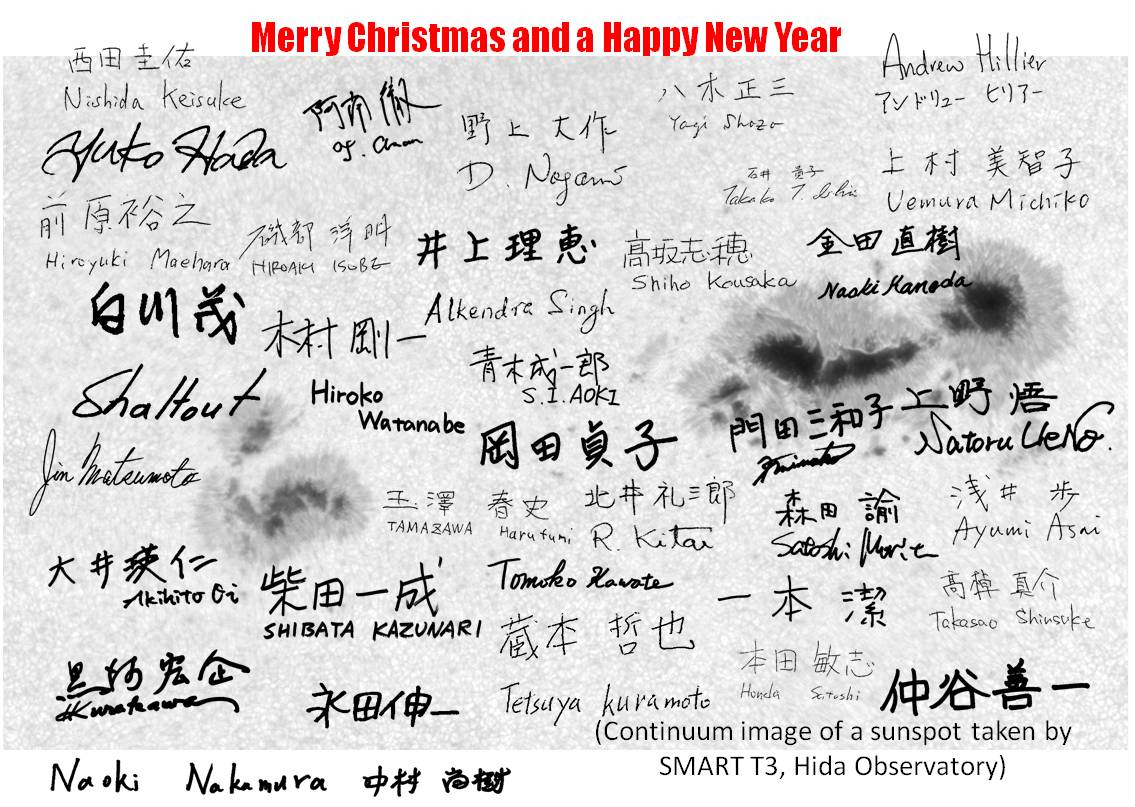 Merry Christmas and a Happy New Year
西田圭佑
Nishida Keisuke
Andrew Hillier
アンドリュー ヒリアー
八木正三
Yagi Shozo
阿南徹
野上大作
D. Nogami
Yuko Hada
石井 貴子
Takako T. Ishii
上村美智子
Uemura Michiko
前原裕之
Hiroyuki Maehara
磯部洋明
HIROAKI ISOBE
井上理恵
高坂志穂
Shiho Kousaka
金田直樹
Naoki Kaneda
白川茂
木村剛一
Alkendra Singh
青木成一郎
S.I.AOKI
Shaltout
Hiroko
Watanabe
岡田貞子
門田三和子
上野悟
Satoru UeNo.
Jin Matsumoto
玉澤 春史
TAMAZAWA Harufumi
北井礼三郎
R. Kitai
森田諭
Satoshi Morita
浅井 歩
Ayumi Asai
大井瑛仁
Akihito Oi
柴田一成
SHIBATA KAZUNARI
Tomoko Kawate
一本潔
高棹真介
Takasao Shinsuke
蔵本哲也
Tetsuya kuramoto
本田敏志
Honda Satoshi
仲谷善一
黒河宏企
H.Kurokawa
永田伸一
(Continuum image of a sunspot taken by
SMART T3, Hida Observatory)
Naoki Nakamura 中村尚樹